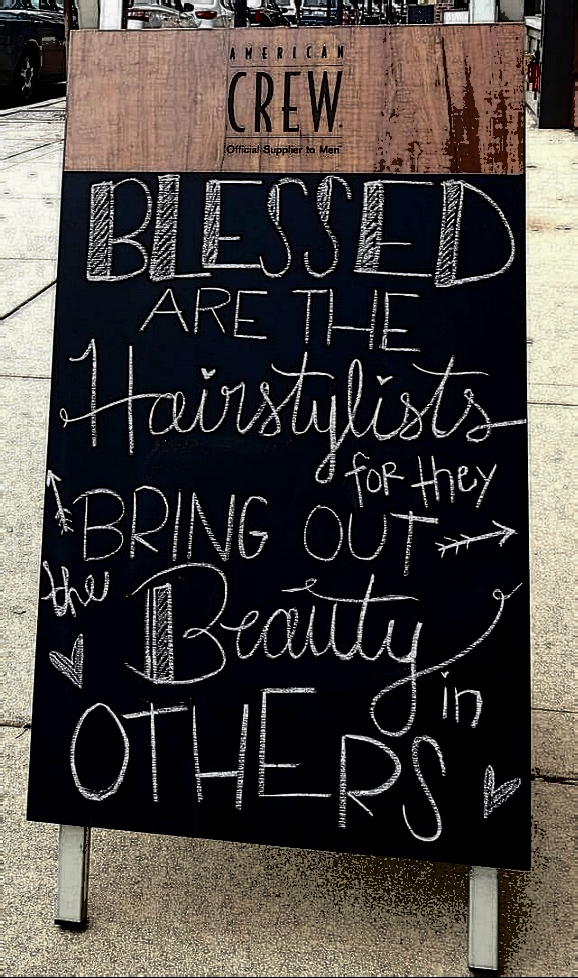 AMERICAN
CREW
Official Supplier to Men
BLESSED
ARE THE
Hairstylists
for they
BRING OUT
the Beauty
in
OTHERS